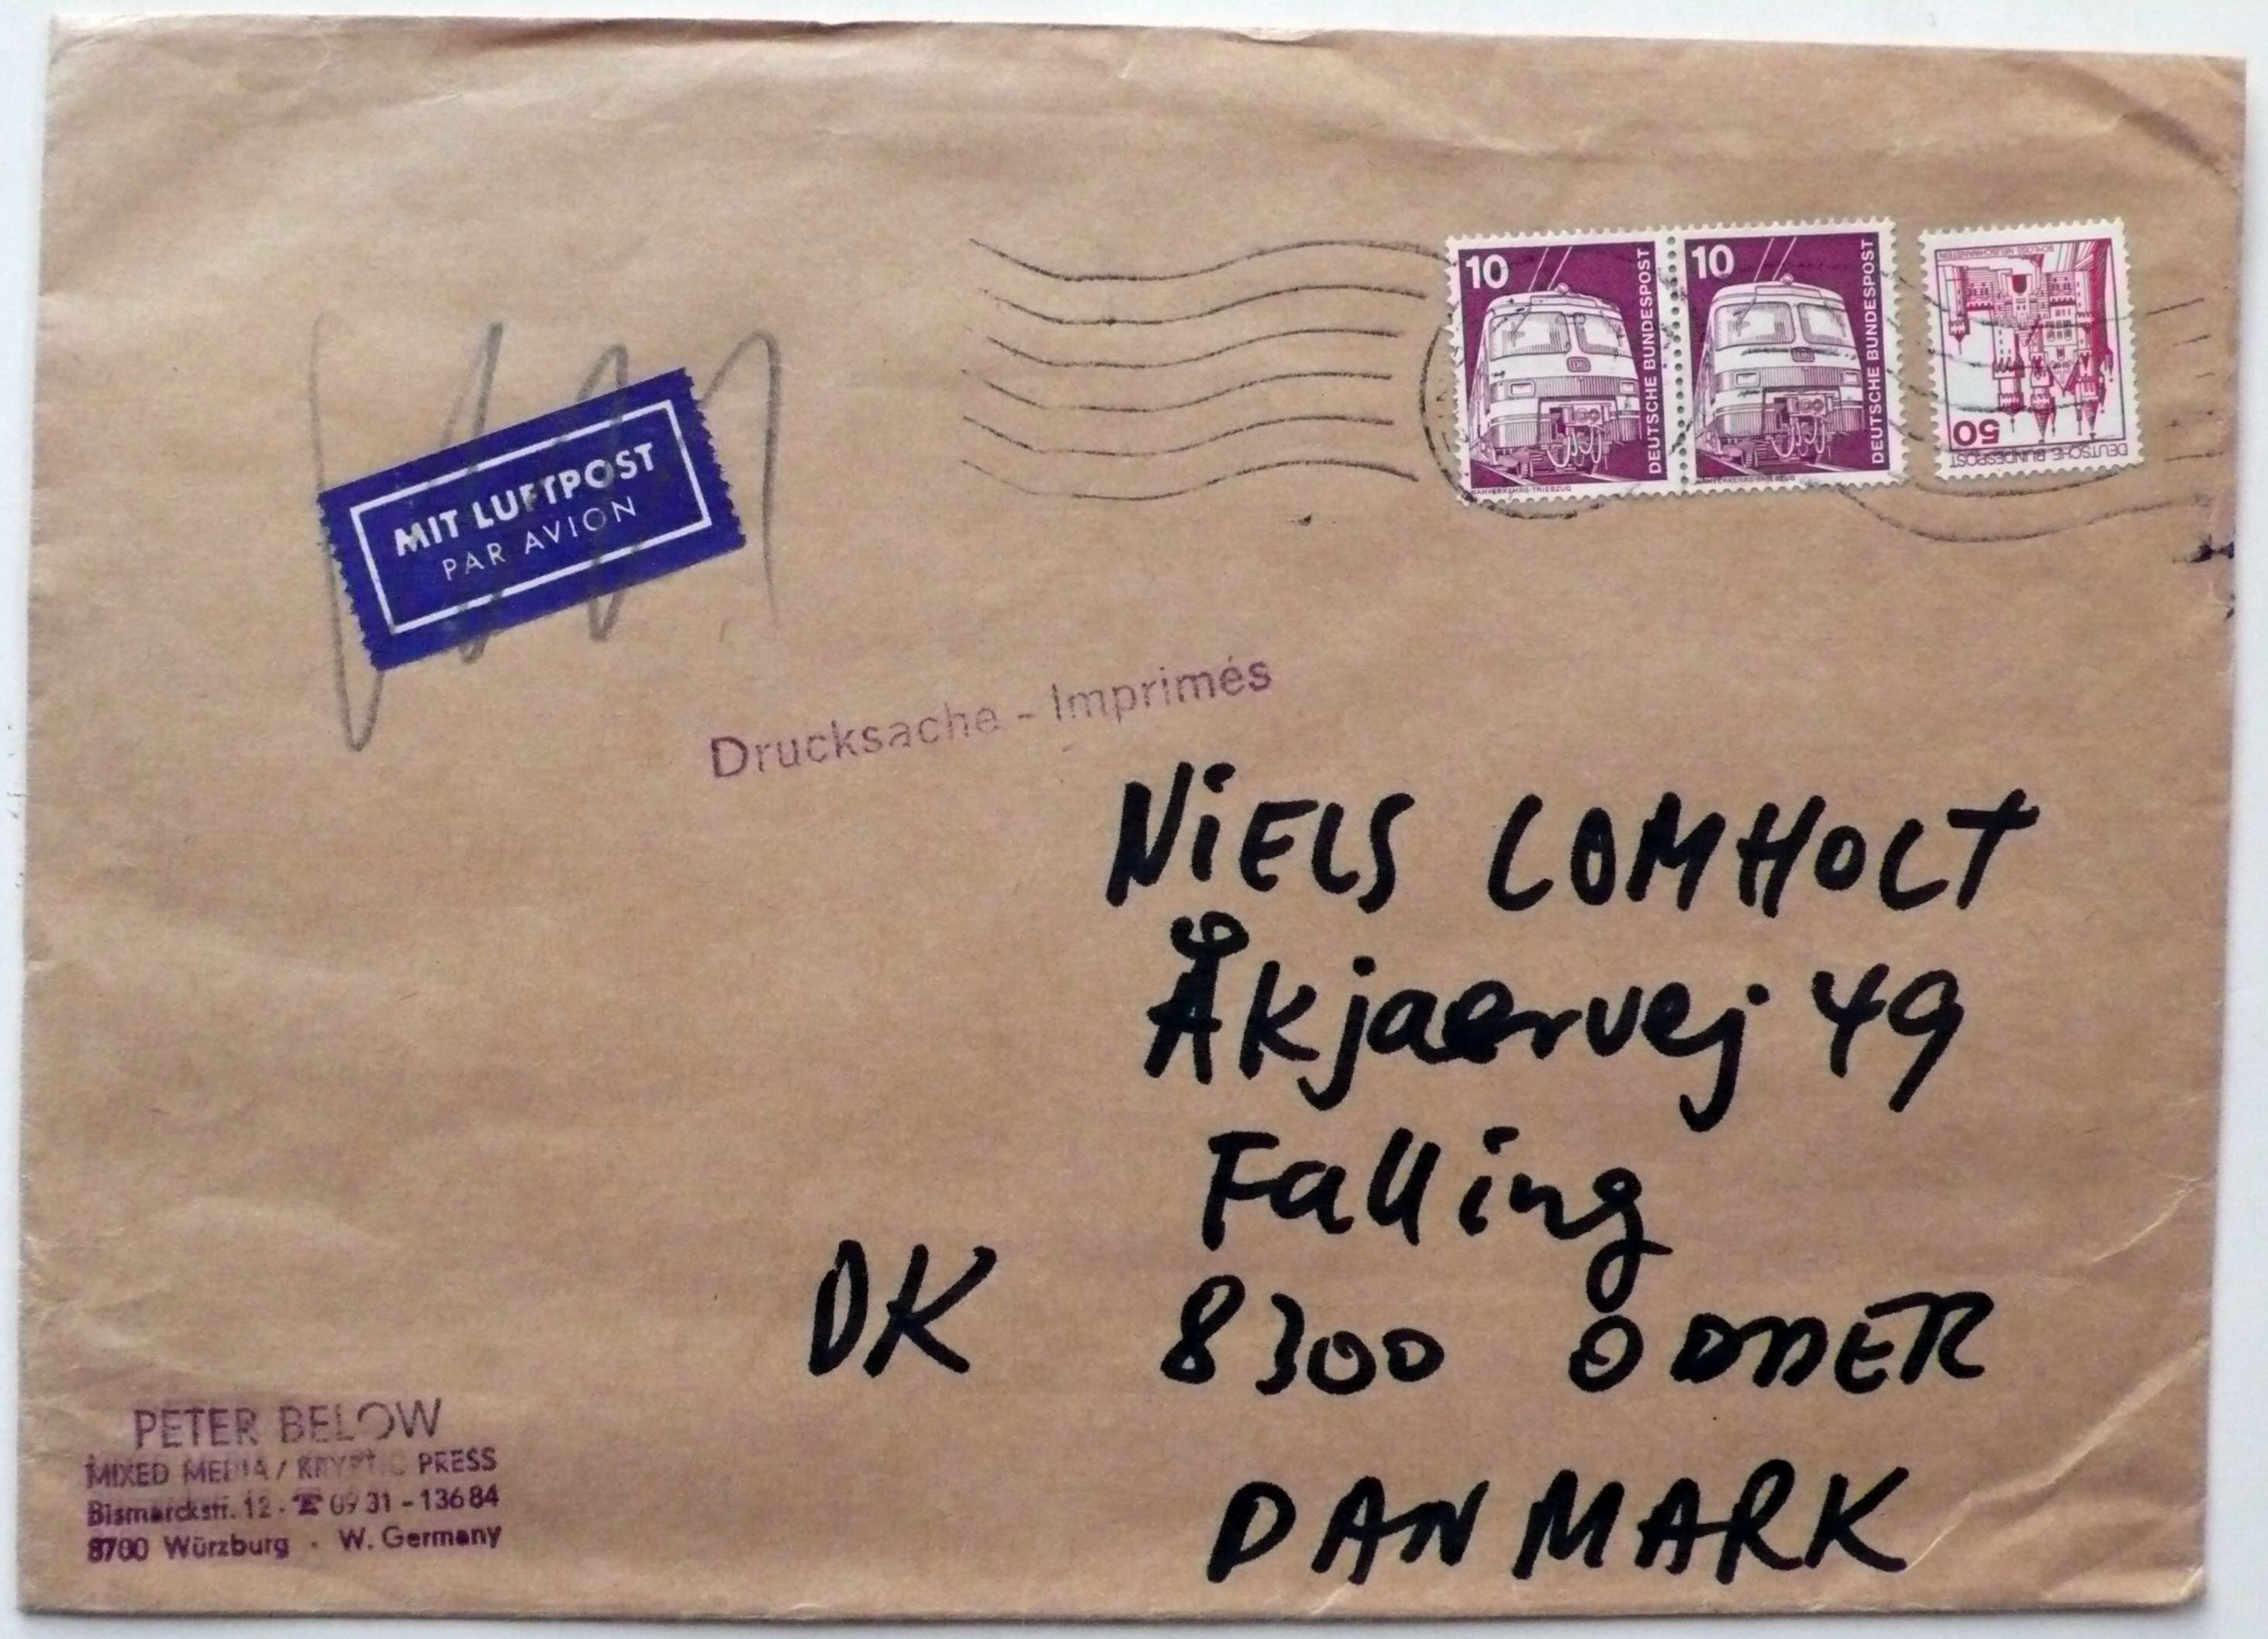 10
DEUTSCHE BUNDESPOST
NAHVERKEHRS-TRIEBZUG
10
DEUTSCHE BUNDESPOST
NAHVERKEHRS-TRIEBZUG
50
DEUTSCHE BUNDESPOST
SCHLOSS NEUSCHWANSTEIN
MIT LUFTPOST
PAR AVION
Drucksache - Imprimés
NiELS LOMHOLT
Åkjaervej 49
Falling
DK 8300 ODDER
DANMARK
PETER BELOW
MIXED MEDIA / KRYPTIC PRESS
Bismarckstr. 12 · ☎ 09 31 - 136 84
8700 Würzburg · W. Germany